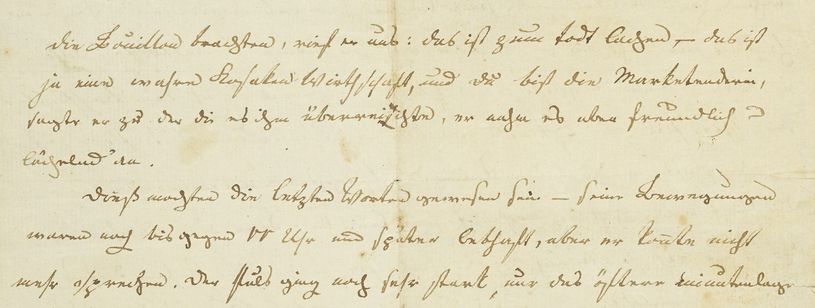 die Bouillon brachten, rief er uns: das ist zum todt lachen – das ist
ja eine wahre Kosaken Wirthschaft, und du bist die Marketenderin,
sagte er zu der die es ihm überreichte, er nahm es aber freundlich
lächelnd an.
Dieß mochten die letzten Worte gewesen sein – seine Bewegungen
waren noch bis gegen Uhr und später lebhaft, aber er konnte nicht
mehr sprechen. Der Puls ging noch sehr stark, nur das öftere minutenlage